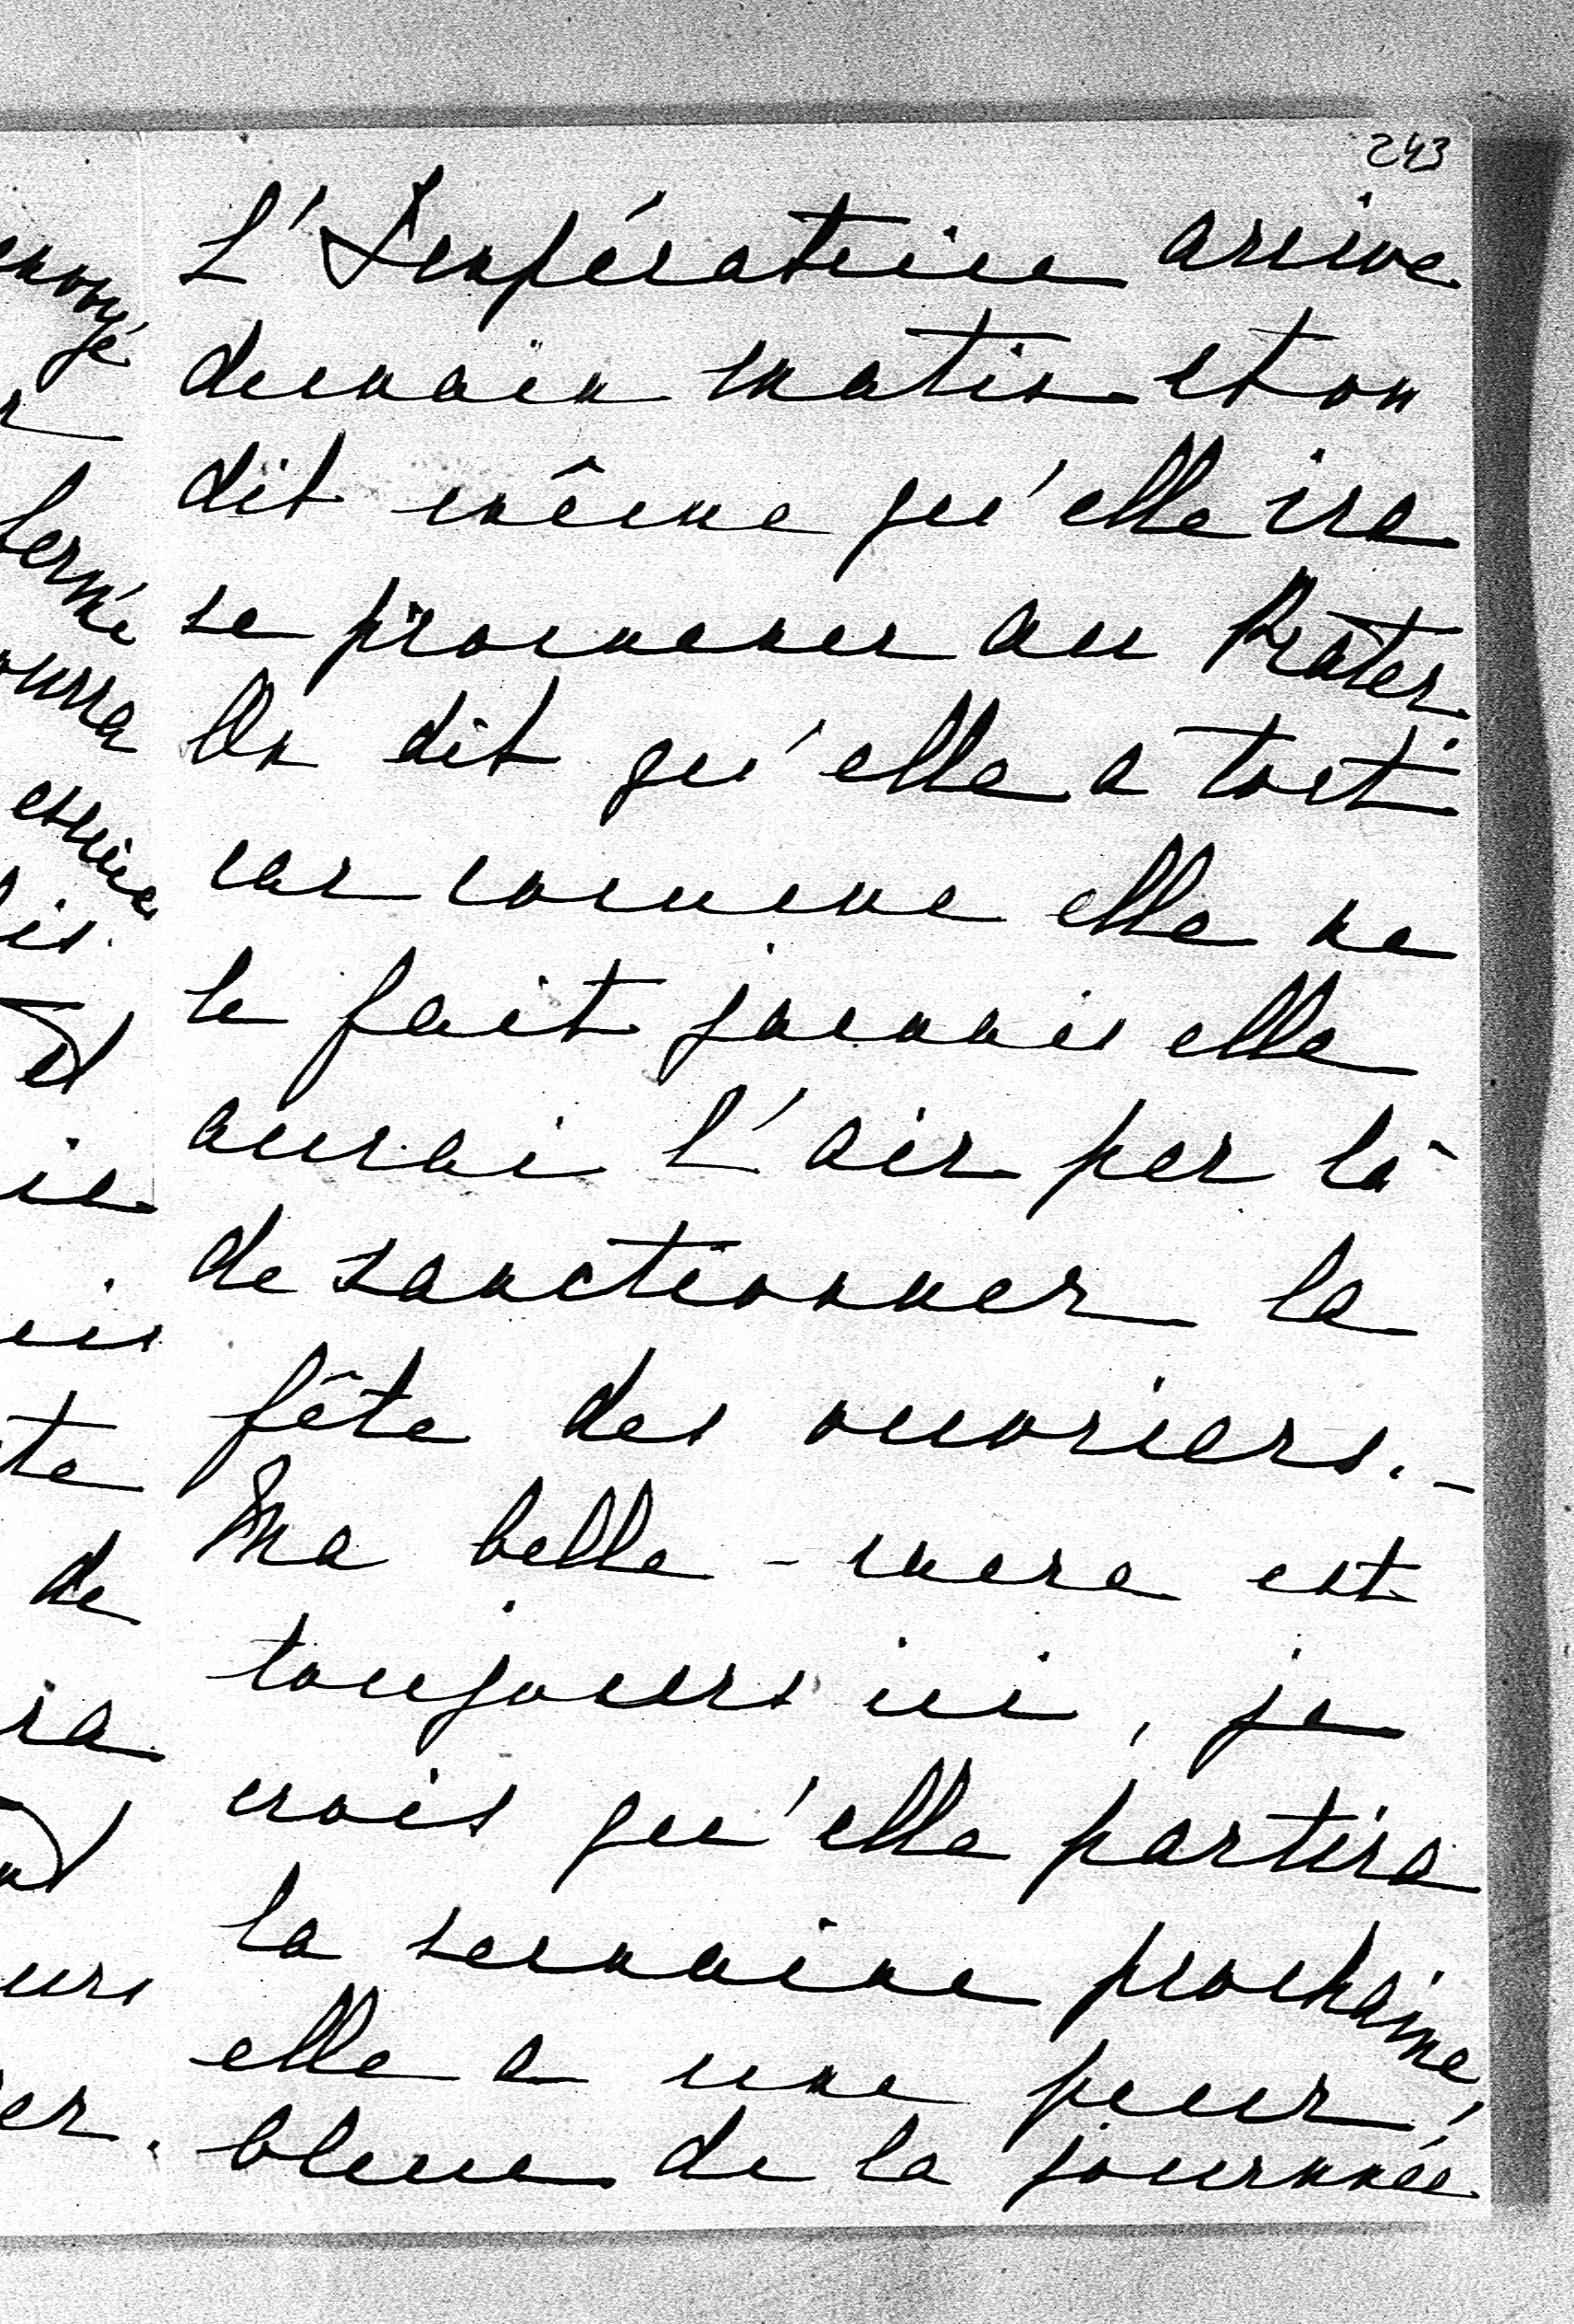 243
L'Impératrice arrive
demain matin et on
dit même qu'elle ira
se promener au Prater.
On dit qu'elle a tort
car comme elle ne
le fait jamais elle
aurai l'air par là
de sanctionner la
fête des ouvriers. –
Ma belle-mere est
toujours ici, je
crois qu'elle partira
la semaine prochaine,
elle a une peur
bleue de la journnée